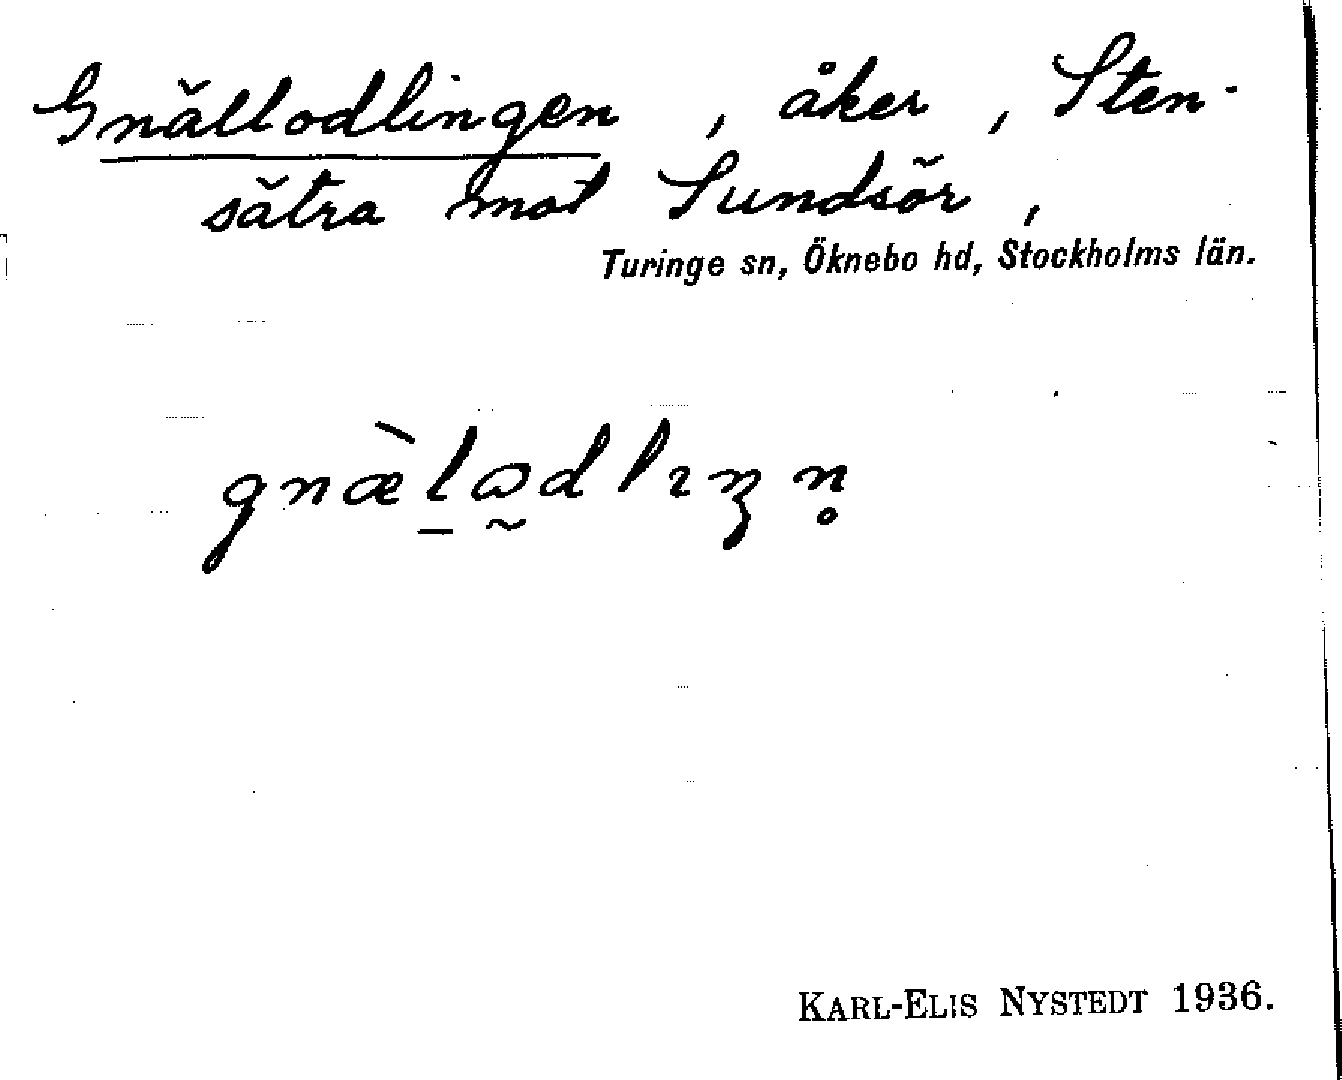 Gnällodlingen, åker, Sten-
sätra mot Sundsör,
Turinge sn, Öknebo hd, Stockholms län.
gnæ̀l̠ω̰dlıŋn̥
KARL-ELIS NYSTEDT 1936.